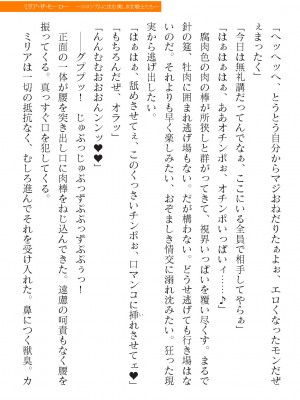 ミリア・ザ・ヒーロー
えまったく」
「ヘッヘッヘ、とうとう自分からマジおねだりたぁよぉ、エロくなったモンだぜ
「今日は無礼講だってんでなぁ。ここにいる全員で相手してやらぁ」
「はぁはぁはぁ、ああオチンポぉ、オチンポいっぱいィ……♪」
腐肉色の肉の棒が所狭しと群がってきて、視界いっぱいを覆い尽くす。まるで
針の筵、牡肉に囲まれ逃げ場もない。だが構わない。どうせ逃げても行き場はな
いのだ。それよりも早く楽しみたい、おぞましき情交に溺れ沈みたい。狂った現
実から逃げ出したい。
「はぁはぁ、舐めさせてぇ、このくっさいチンポぉ、口マンコに挿れさせてェ♥」
「もちろんだぜ、オラッ」
「んんむむおおおんンンッ♥♥」
――グブブッ！　じゅぶっじゅぶぶっずぶぶぅっ！
正面の一体が腰を突き出し口に肉棒をねじ込んできた。遠慮の呵責もなく腰を
振ってくる。真っすぐ口を犯してくる。
ミリアは一切の抵抗なく、むしろ進んでそれを受け入れた。鼻につく獣臭。カ